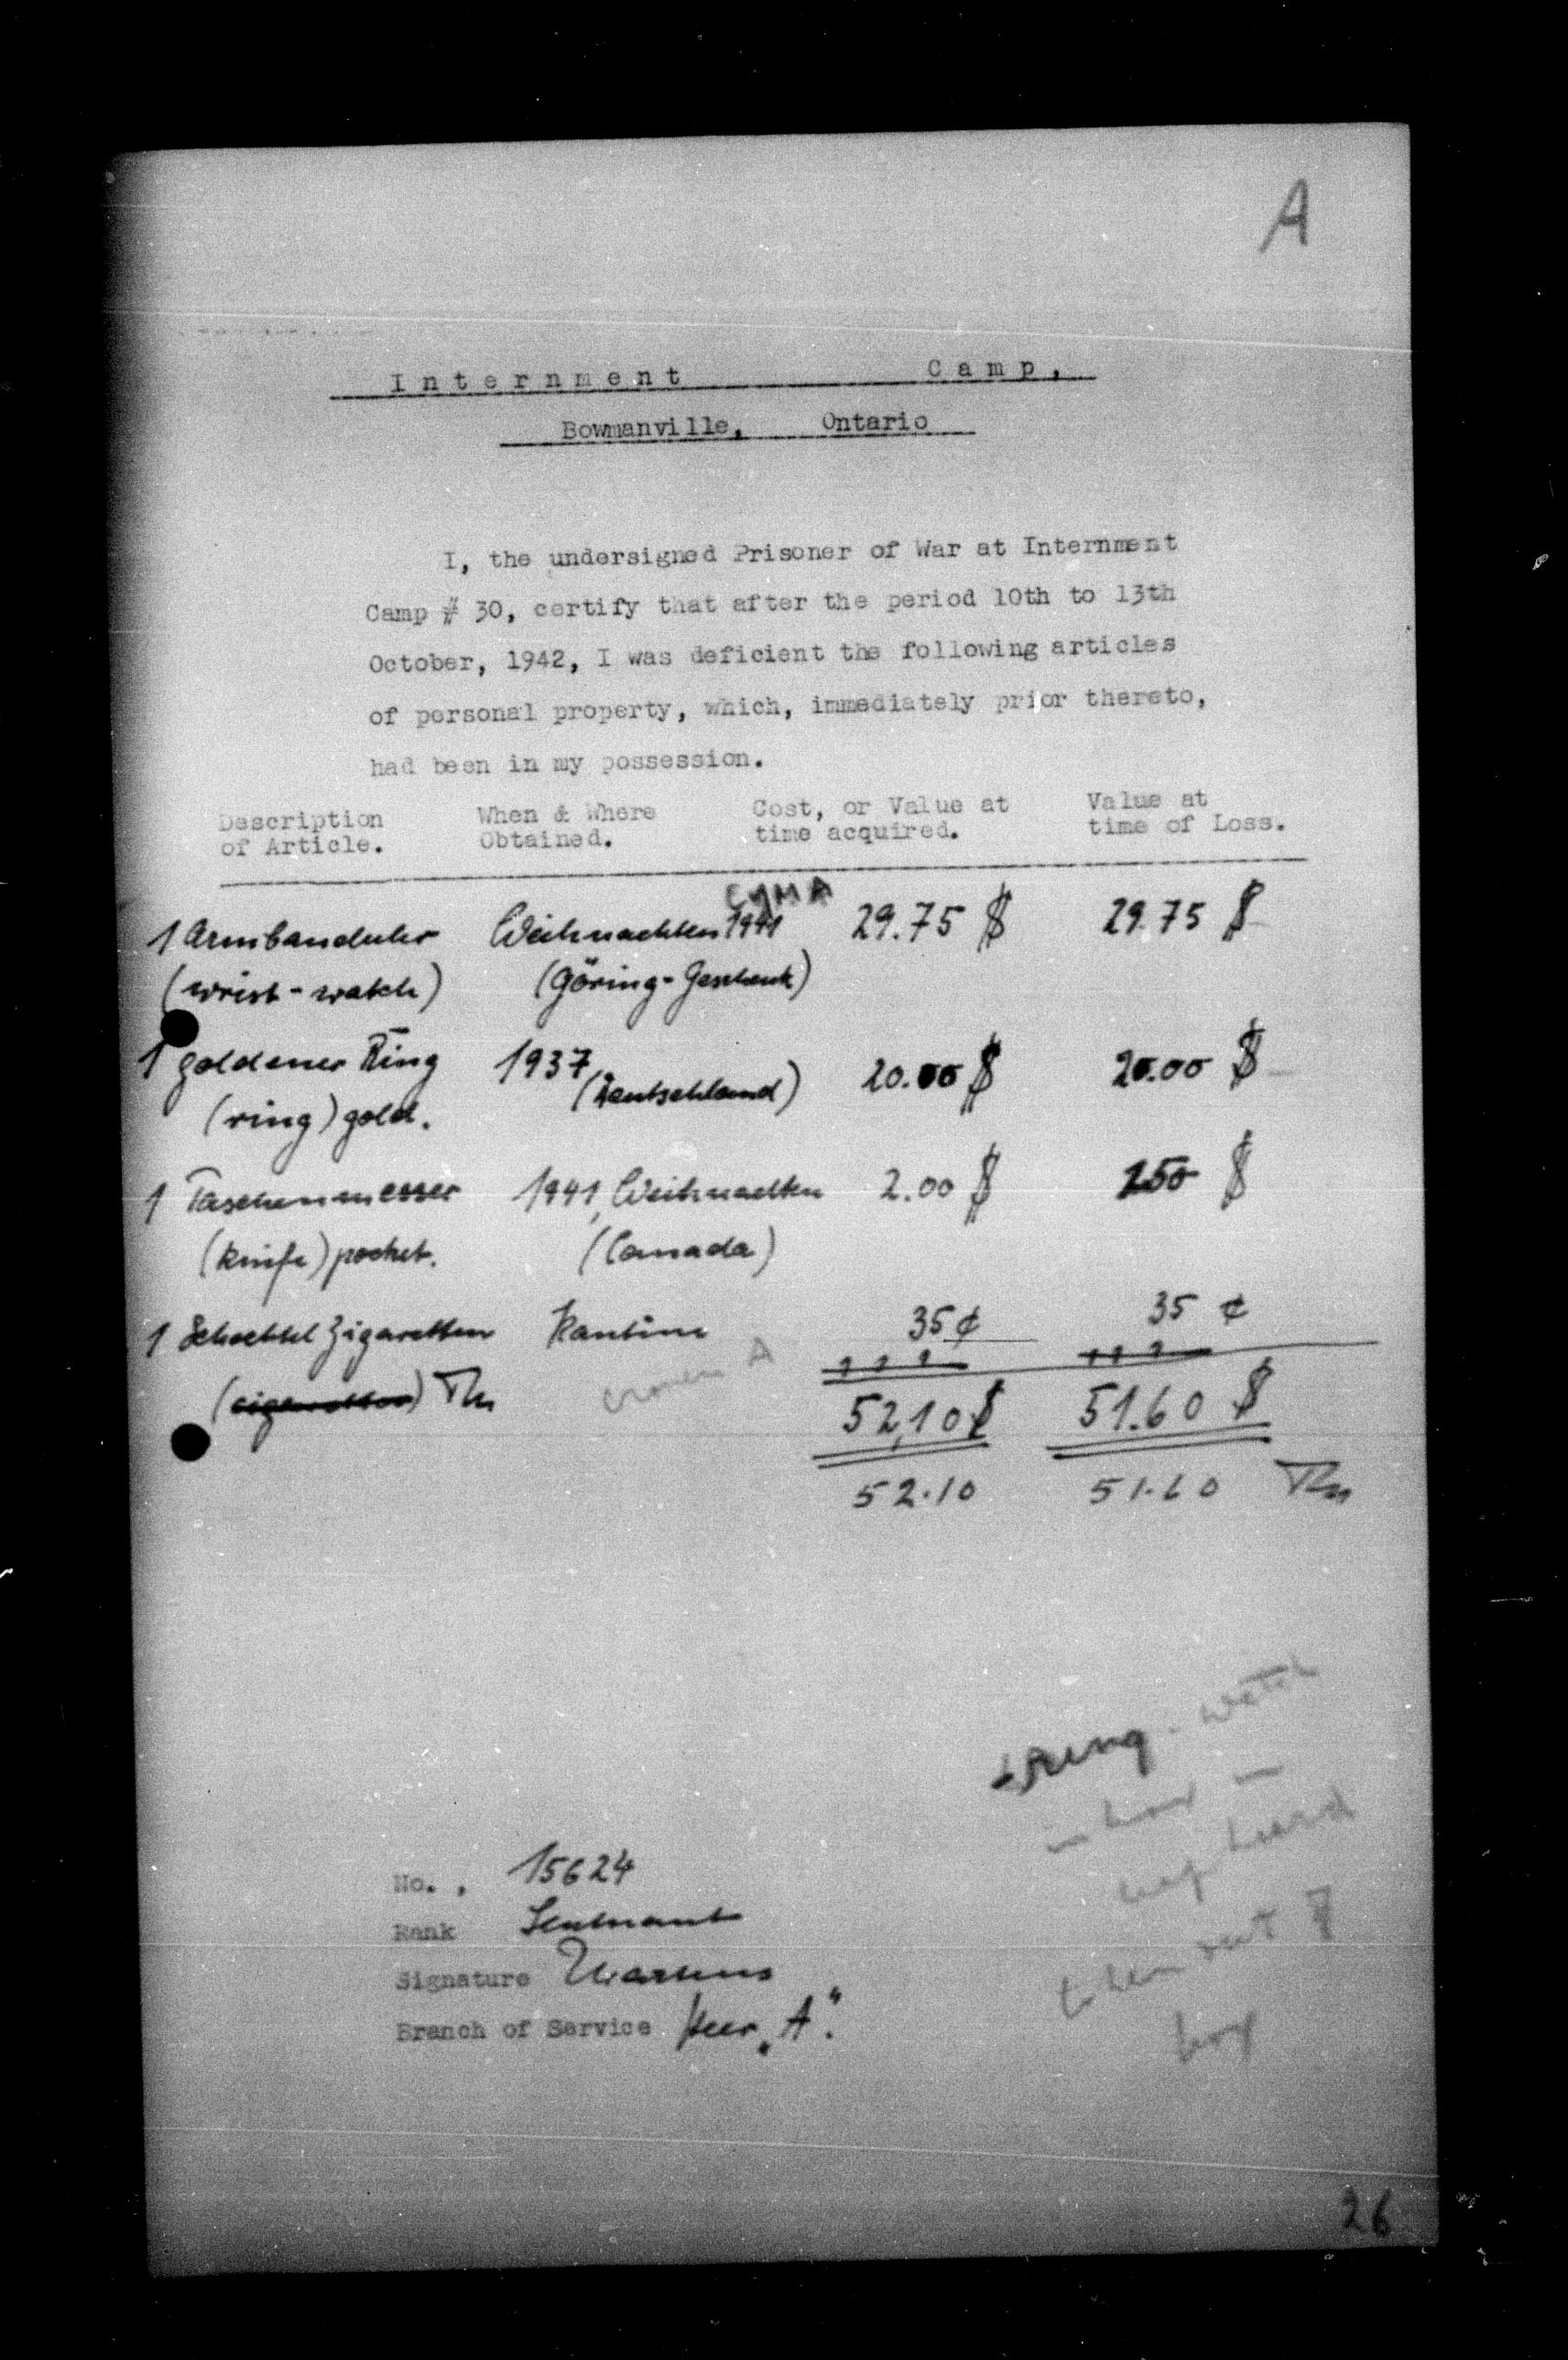 A
Internment Camp,
Bowmanville, Ontario
I, the undersigned Prisoner of War at Internment
Camp # 30, certify that after the period 10th to 13th
October, 1942, I was deficient the following articles
of personal property, which, immediately prior thereto,
had been in my possession.
Description When & Where Cost, or Value at Value at
of Article. Obtained. time acquired. time of Loss.
CYMA
1 Armbanduhr Weihnachten 1941 29.75 $ 29.75 $
(wrist-watch) (Göring-Geschenk)
1 goldener Ring 1937, 20.00 $ 20.00 $
(ring) gold. (Deutschland)
1 Taschenmesser 1941, Weihnachten 2.00 $ 150 $
(knife) pocket. (Canada)
1 Schachtel Zigaretten Kantine 35 ¢ 35 ¢
(cigaretten) A
52,10 $ 51.60 $
52.10 51.60
ring - watch
in box
hand
taken out of
box
No. , 15624
Rank Leutnant
Signature Martens
Branch of Service Heer „A".
26